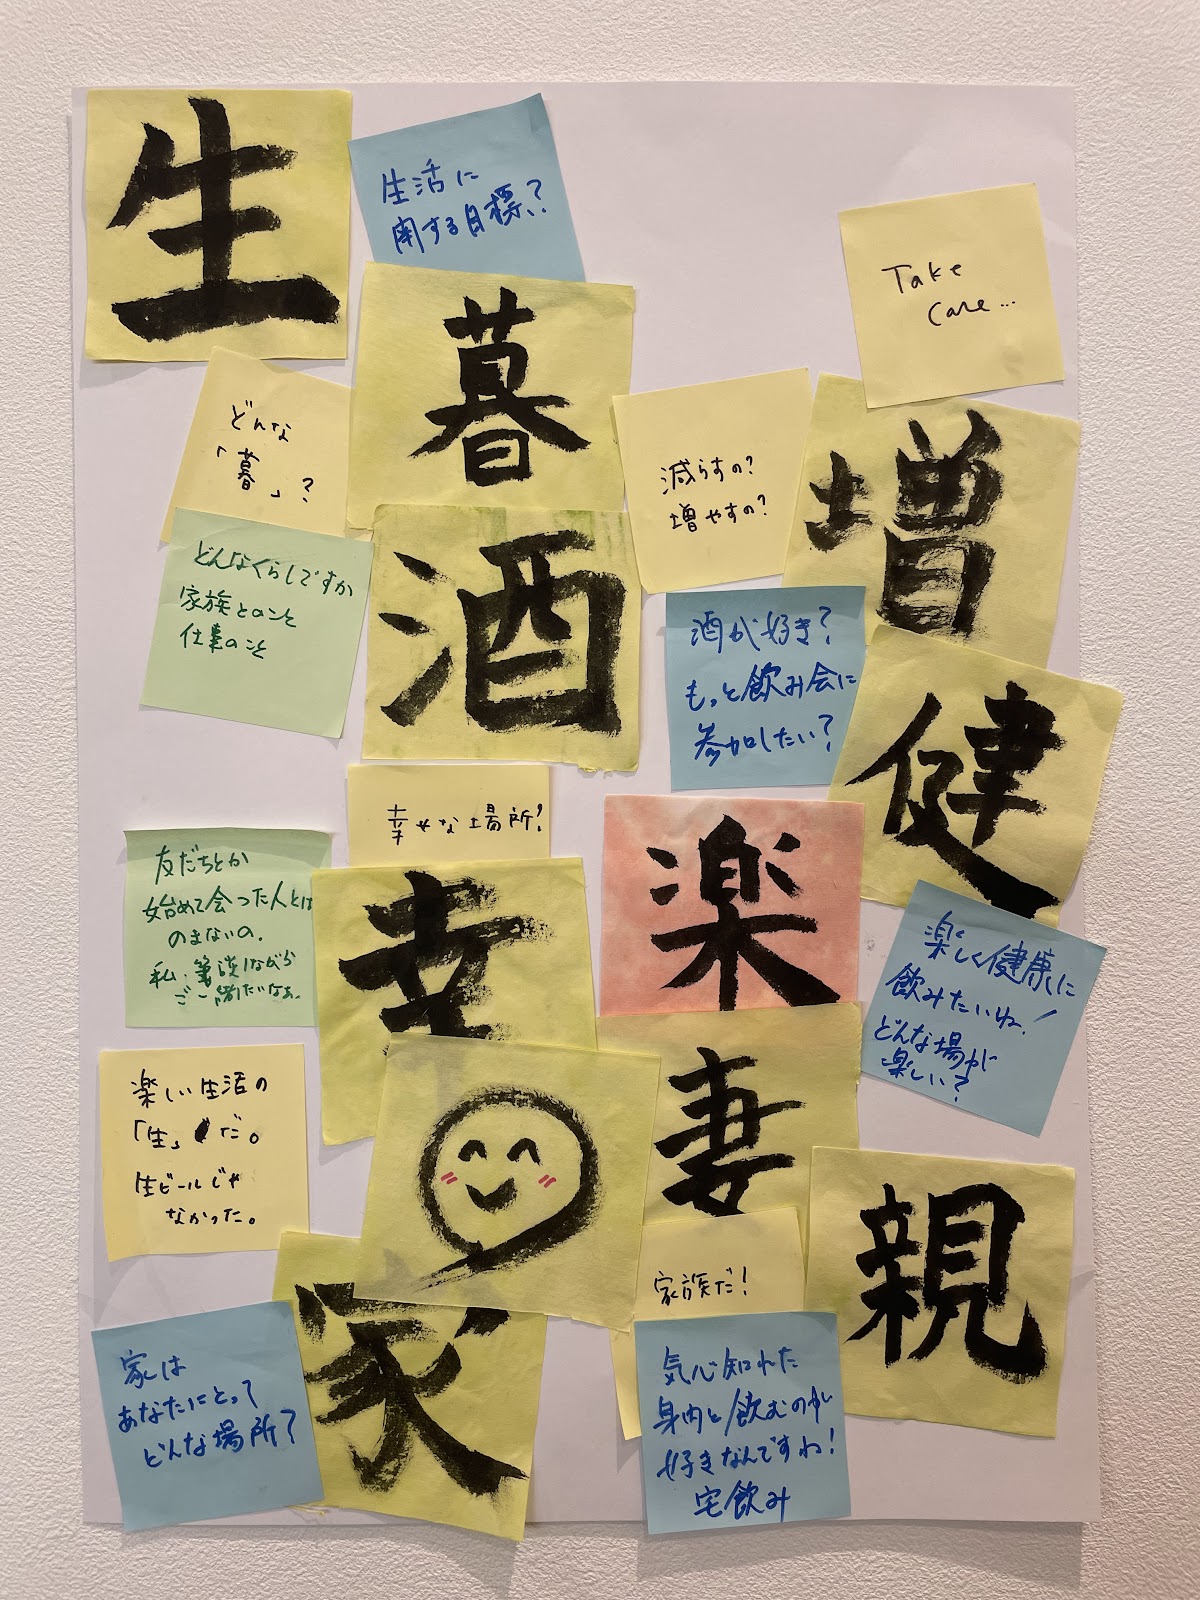 生
生活に
関する目標？
Take
Care...
暮
どんな
「暮」？
減らすの？
増やすの？
増
どんなくらしですか
家族とのこと
仕事のこと
酒
酒が好き？
もっと飲み会に
参加したい？
健
幸せな場所？
楽
友だちとか
始めて会った人とは
のまないの。
私、筆談しながら
ご一緒したいなぁ。
幸
楽しく健康に
飲みたいね！
どんな場が
楽しい？
楽しい生活の
「生」だ。
生ビールじゃ
なかった。
妻
親
家族だ！
家
家は
あなたにとって
どんな場所？
気心知れた
身内と飲むのが
好きなんですね！
宅飲み